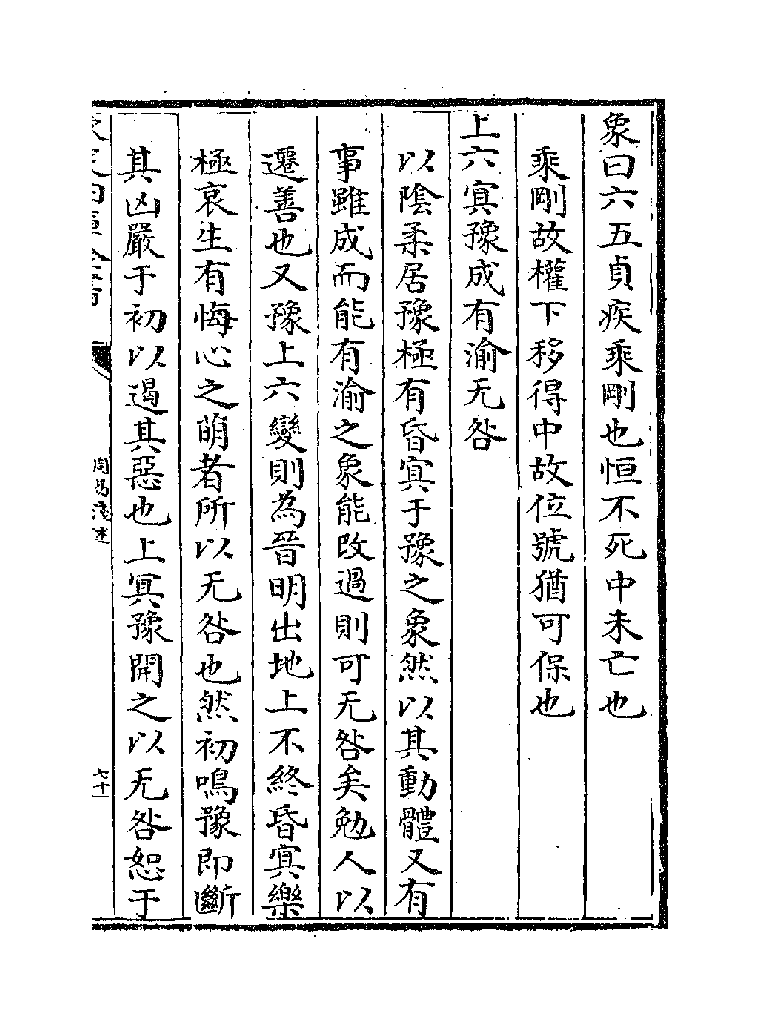 象曰六五貞疾乘剛也恒不死中未亡也
乘剛故權下移得中故位號猶可保也
上六冥豫成有渝无咎
以陰柔居豫極有昏冥于豫之象然以其動體又有
事雖成而能有渝之象能改過則可无咎矣勉人以
遷善也又豫上六變則為晉明出地上不終昏冥樂
極哀生有悔心之萌者所以无咎也然初鳴豫即斷
其凶嚴于初以遏其惡也上冥豫開之以无咎恕于
周易淺述
六十